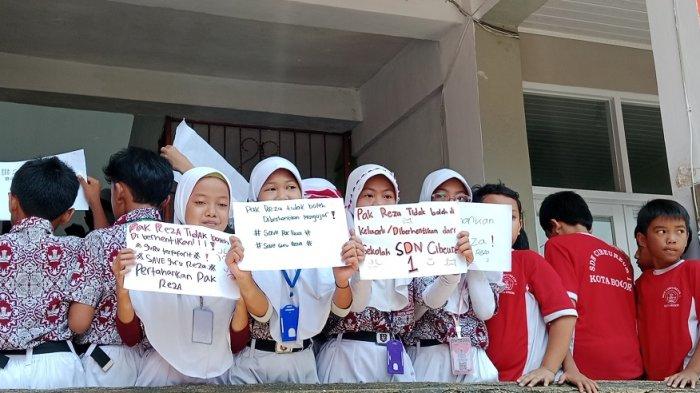 Pak Reza Tidak boleh
Di berhentikan!!!!
# SAVE guru Reza #
Pertahankan Pak
Reza
Pak Reza tidak boleh
Diberhentikan Mengajar!
# SAVE Pak Reza #
# SAVE Guru Reza #
Pak Reza Tidak boleh di
Keluarin/Diberhentikan dari
Sekolah SDN Cibeureum
1
!
SDN CIBEUREUM 1
KOTA BOGOR